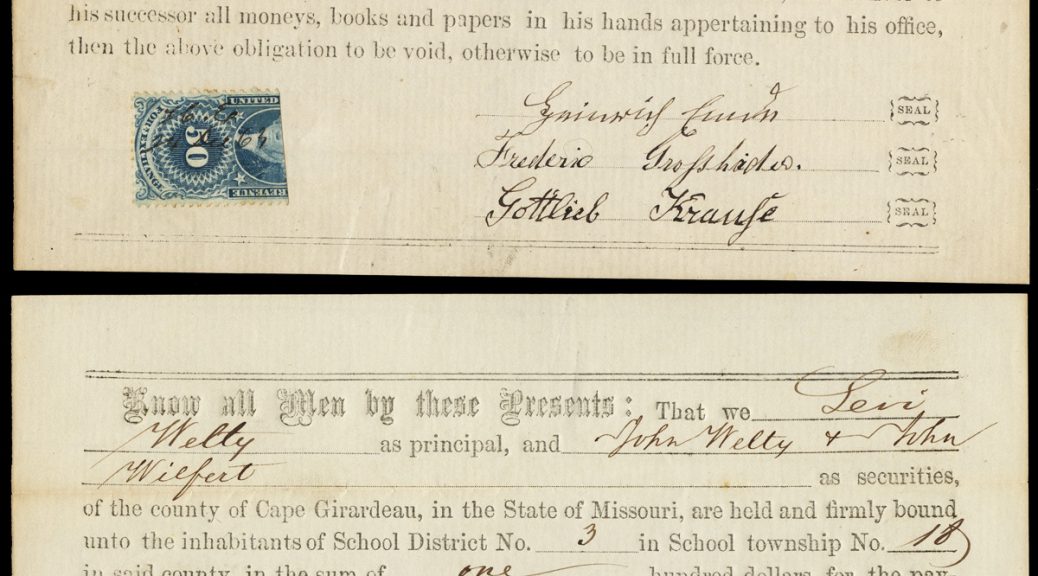 his successor all moneys, books and papers in his hands appertaining to his office,
then the above obligation to be void, otherwise to be in full force.
UNITED
INTER. EXCHANGE
50
REVENUE
Heinrich
SEAL
Frederic
SEAL
Gottlieb Krause
SEAL
Know all Men by these Presents: That we Levi
Welty as principal, and John Welty & John
Wilfert as securities,
of the county of Cape Girardeau, in the State of Missouri, are held and firmly bound
unto the inhabitants of School District No. 3 in School township No. 18
in said county, in the sum of one hundred dollars, for the pay-